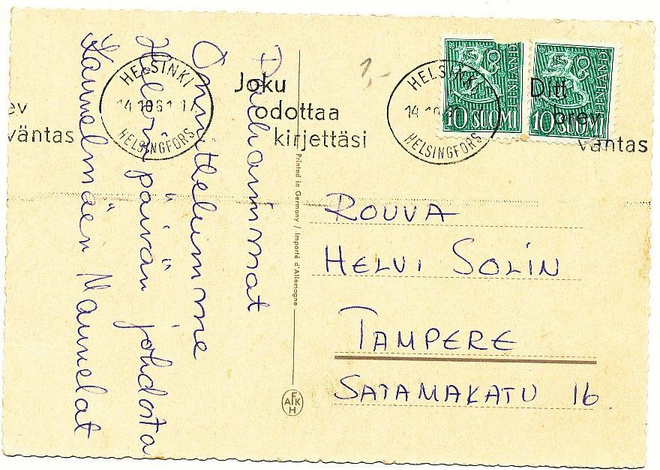 Parhaimmat
Onnittelumme
Helvin päivän johdosta
Kannelmäen Mannelat
ev
väntas
HELSINKI
14.10.61 17
HELSINGFORS
Joku
odottaa
kirjettäsi
HELSINKI
14
HELSINGFORS
10 SUOMI
FINLAND
10 SUOMI
FINLAND
Ditt
brev
väntas
Printed in Germany / Importé d'Allemagne
ROUVA
HELVI SOLIN
TAMPERE
SATAMAKATU 16.
AFKH
1,-